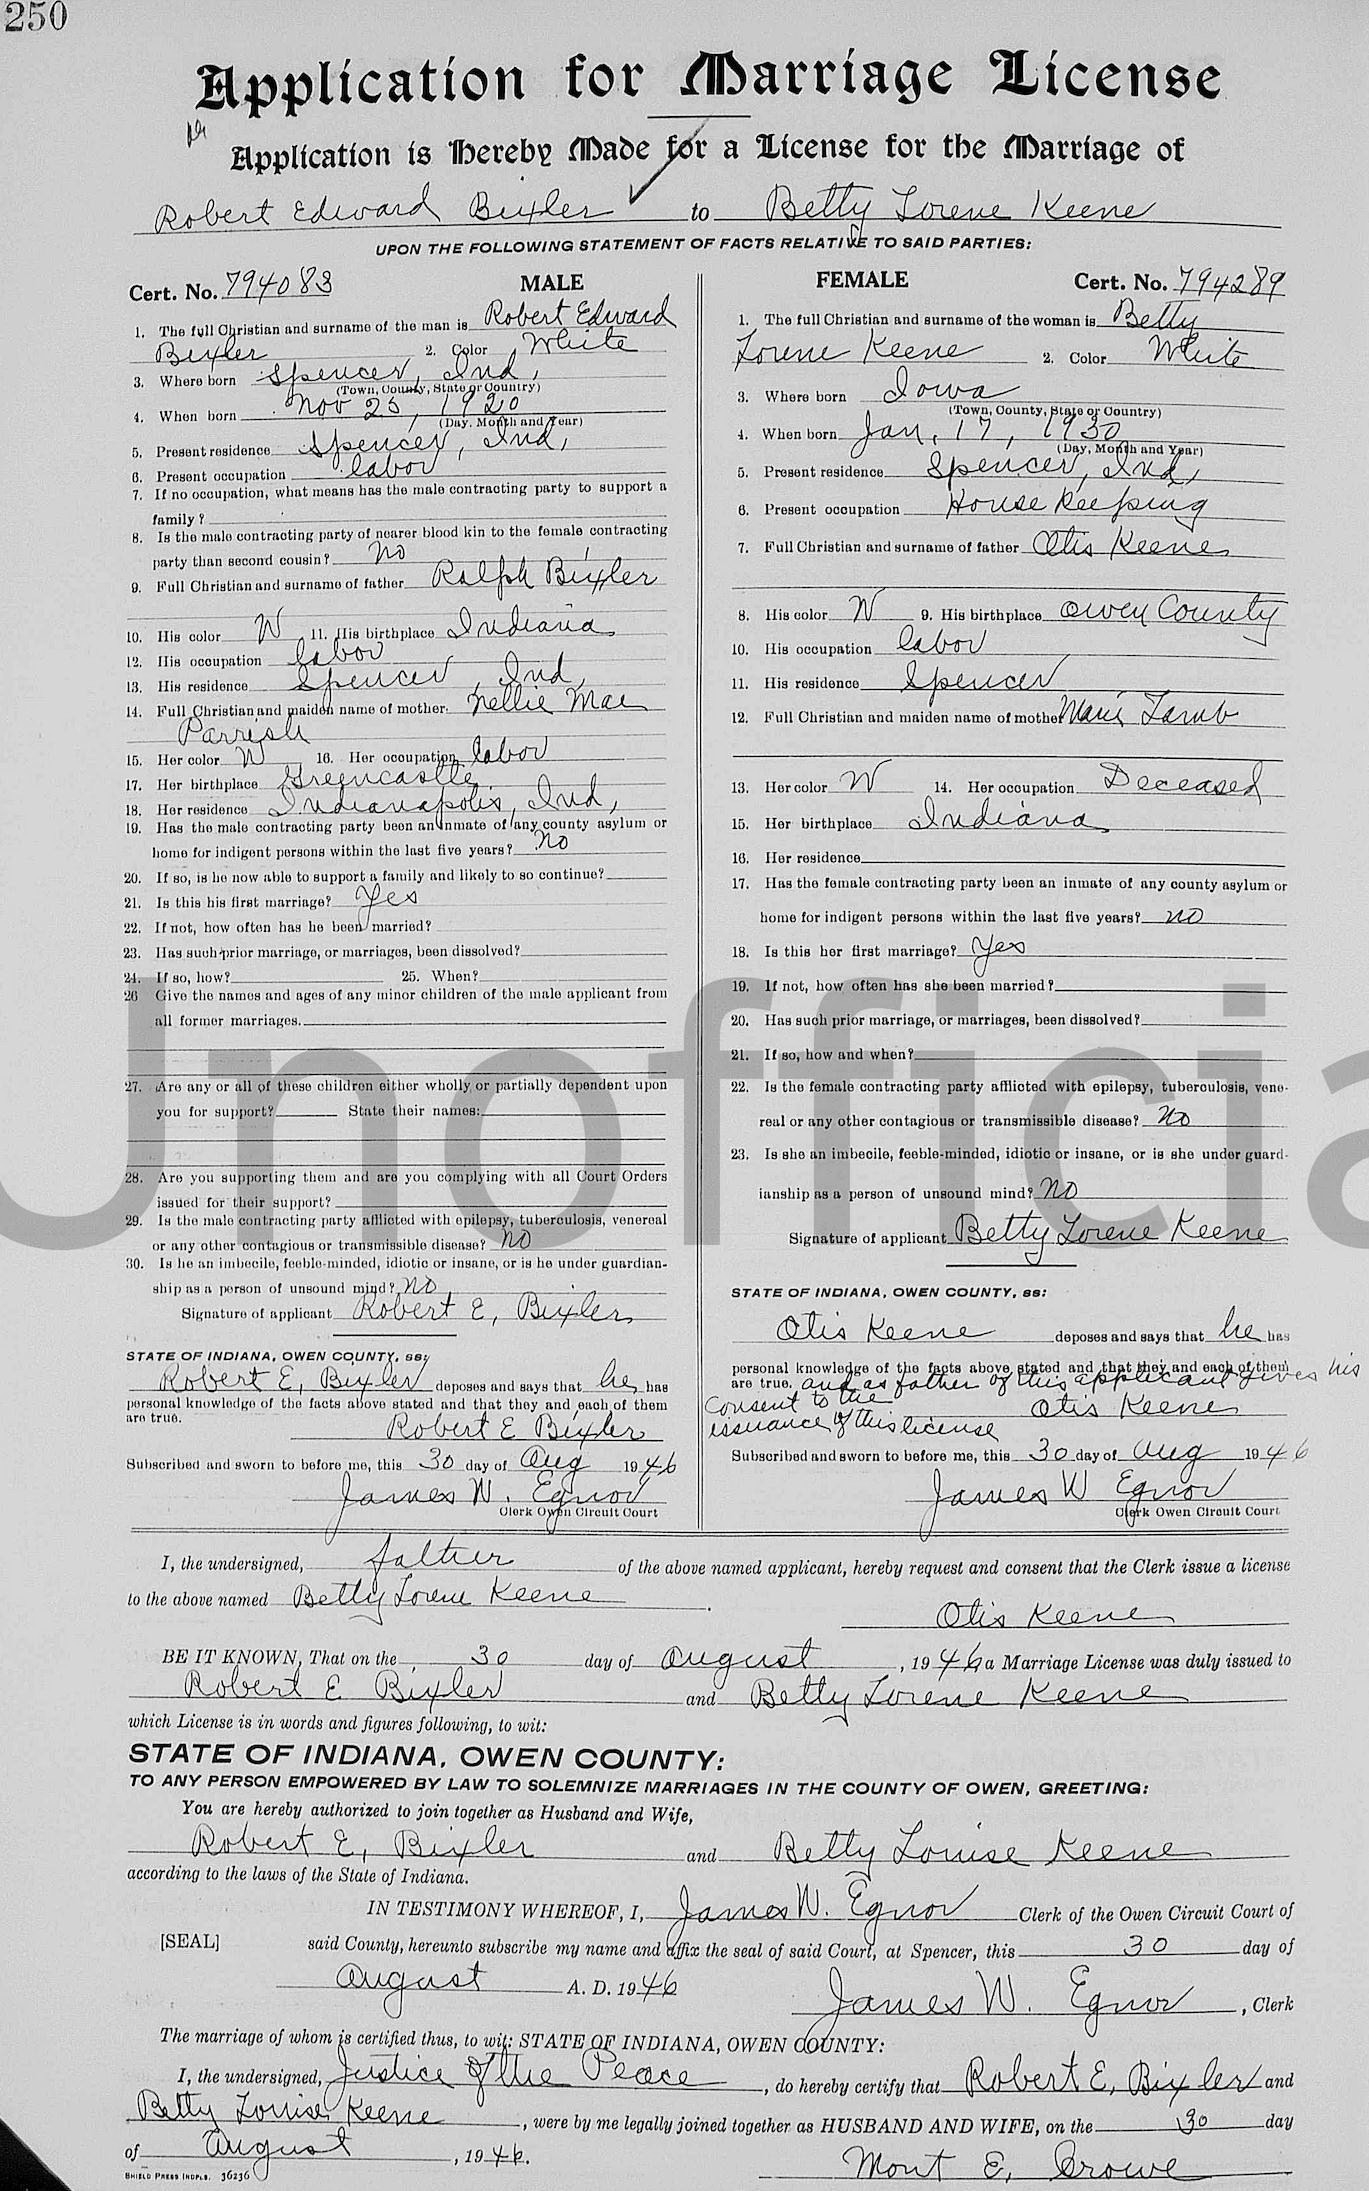 250
Application for Marriage License
Application is Hereby Made for a License for the Marriage of
Robert Edward Bixler to Betty Lorene Keene
UPON THE FOLLOWING STATEMENT OF FACTS RELATIVE TO SAID PARTIES:
Cert. No. 794083 MALE
1. The full Christian and surname of the man is Robert Edward
Bixler 2. Color White
3. Where born Spencer, Ind,
(Town, County, State or Country)
4. When born Nov 25, 1920
(Day, Month and Year)
5. Present residence Spencer, Ind,
6. Present occupation labor
7. If no occupation, what means has the male contracting party to support a
family?
8. Is the male contracting party of nearer blood kin to the female contracting
party than second cousin? no
9. Full Christian and surname of father Ralph Bixler
10. His color W 11. His birthplace Indiana
12. His occupation labor
13. His residence Spencer, Ind,
14. Full Christian and maiden name of mother. Nellie Mae
Parrish
15. Her color W 16. Her occupation labor
17. Her birthplace Greencastle
18. Her residence Indianapolis, Ind,
19. Has the male contracting party been an inmate of any county asylum or
home for indigent persons within the last five years? no
20. If so, is he now able to support a family and likely to so continue?
21. Is this his first marriage? Yes
22. If not, how often has he been married?
23. Has such prior marriage, or marriages, been dissolved?
24. If so, how? 25. When?
26 Give the names and ages of any minor children of the male applicant from
all former marriages.
27. Are any or all of these children either wholly or partially dependent upon
you for support? State their names:
28. Are you supporting them and are you complying with all Court Orders
issued for their support?
29. Is the male contracting party afflicted with epilepsy, tuberculosis, venereal
or any other contagious or transmissible disease? no
30. Is he an imbecile, feeble-minded, idiotic or insane, or is he under guardian-
ship as a person of unsound mind? no
Signature of applicant Robert E, Bixler
STATE OF INDIANA, OWEN COUNTY, ss:
Robert E, Bixler deposes and says that he has
personal knowledge of the facts above stated and that they and each of them
are true.
Robert E Bixler
Subscribed and sworn to before me, this 30 day of Aug 1946
James W. Egnor
Clerk Owen Circuit Court
FEMALE Cert. No. 794289
1. The full Christian and surname of the woman is Betty
Lorene Keene 2. Color White
3. Where born Iowa
(Town, County, State or Country)
4. When born Jan, 17, 1930
(Day, Month and Year)
5. Present residence Spencer, Ind,
6. Present occupation House Keeping
7. Full Christian and surname of father Otis Keene
8. His color W 9. His birthplace Owen County
10. His occupation labor
11. His residence Spencer
12. Full Christian and maiden name of mother Marie Lamb
13. Her color W 14. Her occupation Deceased
15. Her birthplace Indiana
16. Her residence
17. Has the female contracting party been an inmate of any county asylum or
home for indigent persons within the last five years? no
18. Is this her first marriage? yes
19. If not, how often has she been married?
20. Has such prior marriage, or marriages, been dissolved?
21. If so, how and when?
22. Is the female contracting party afflicted with epilepsy, tuberculosis, vene-
real or any other contagious or transmissible disease? no
23. Is she an imbecile, feeble-minded, idiotic or insane, or is she under guard-
ianship as a person of unsound mind? no
Signature of applicant Betty Lorene Keene
STATE OF INDIANA, OWEN COUNTY, ss:
Otis Keene deposes and says that he has
personal knowledge of the facts above stated and that they and each of them
are true. and as father of this applicant gives his
consent to the
issuance of this license
Otis Keene
Subscribed and sworn to before me, this 30 day of Aug 1946
James W Egnor
Clerk Owen Circuit Court
I, the undersigned, father of the above named applicant, hereby request and consent that the Clerk issue a license
to the above named Betty Lorene Keene.
Otis Keene
BE IT KNOWN, That on the 30 day of August, 1946 a Marriage License was duly issued to
Robert E Bixler and Betty Lorene Keene
which License is in words and figures following, to wit:
STATE OF INDIANA, OWEN COUNTY:
TO ANY PERSON EMPOWERED BY LAW TO SOLEMNIZE MARRIAGES IN THE COUNTY OF OWEN, GREETING:
You are hereby authorized to join together as Husband and Wife,
Robert E, Bixler and Betty Louise Keene
according to the laws of the State of Indiana.
IN TESTIMONY WHEREOF, I, James W. Egnor Clerk of the Owen Circuit Court of
[SEAL] said County, hereunto subscribe my name and affix the seal of said Court, at Spencer, this 30 day of
August A. D. 1946
James W. Egnor, Clerk
The marriage of whom is certified thus, to wit: STATE OF INDIANA, OWEN COUNTY:
I, the undersigned, Justice of the Peace, do hereby certify that Robert E, Bixler and
Betty Louise Keene, were by me legally joined together as HUSBAND AND WIFE, on the 30 day
of August, 1946.
Mont E, Crowe
SHIELD PRESS INDPLS. 36236
Unofficia